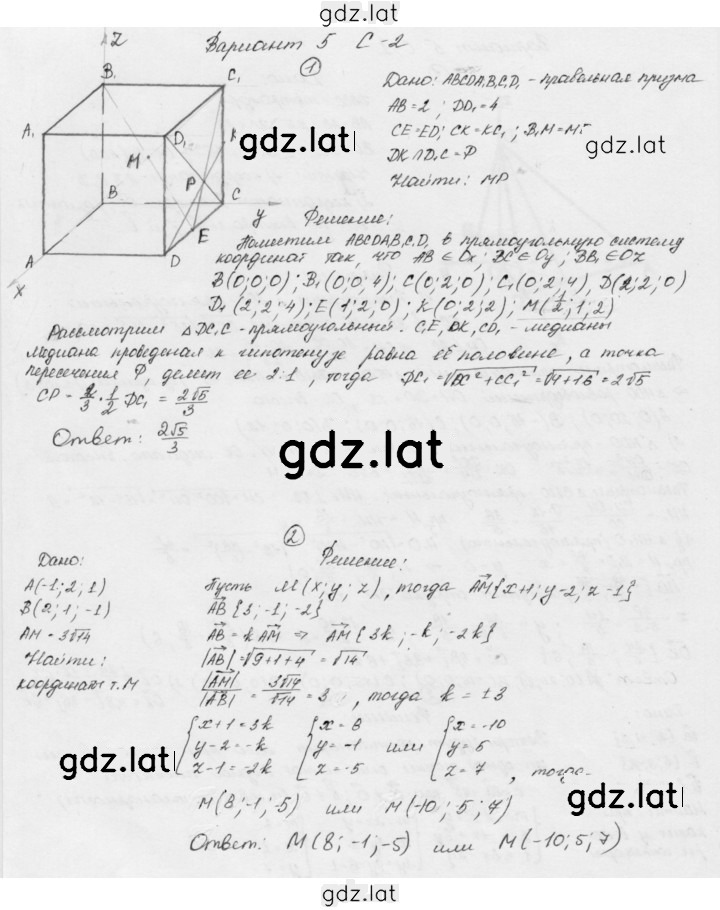 gdz.lat
Вариант 5 С-2
1
Z
B₁
C₁
A₁
D₁
K
M
P
B
C
y
E
A
D
X
Дано: ABCDA₁B₁C₁D₁ - правильная призма
AB=2; DD₁=4
CE=ED; CK=KC₁; B₁M=ME
DK∩D₁C=P
Найти: MP
gdz.lat
gdz.lat
Решение:
Поместим ABCDA₁B₁C₁D₁ в прямоугольную систему
координат так, что AB ∈ Ox; BC ∈ Oy; BB₁ ∈ Oz
B(0;0;0); B₁(0;0;4); C(0;2;0); C₁(0;2;4), D(2;2;0)
D₁(2;2;4); E(1;2;0); K(0;2;2); M(1/2;1;2)
Рассмотрим △DC₁C - прямоугольный. C₁E, DK, CD₁ - медианы
Медиана проведеная к гипотенузе равна её половине, а точка
пересечения P, делит ее 2:1, тогда DC₁=√DC²+CC₁²=√4+16=2√5
CP=2/3·1/2 DC₁=2√5/3
Ответ: 2√5/3
gdz.lat
2
Дано:
A(-1;2;1)
B(2;1;-1)
AM=3√14
Найти:
координат т.М
Решение:
Пусть M(x;y;z), тогда AM{x+1;y-2;z-1}
AB{3;-1;-2}
AB=kAM ⇒ AM{3k;-k;-2k}
|AB|=√9+1+4=√14
|AM|/|AB|=3√14/√14=3, тогда k=±3
{x+1=3k {x=8 {x=-10
{y-2=-k {y=-1 или {y=5
{z-1=-2k {z=-5 {z=7, тогда
gdz.lat
gdz.lat
M(8;-1;-5) или M(-10;5;7)
Ответ: M(8;-1;-5) или M(-10;5;7)
gdz.lat